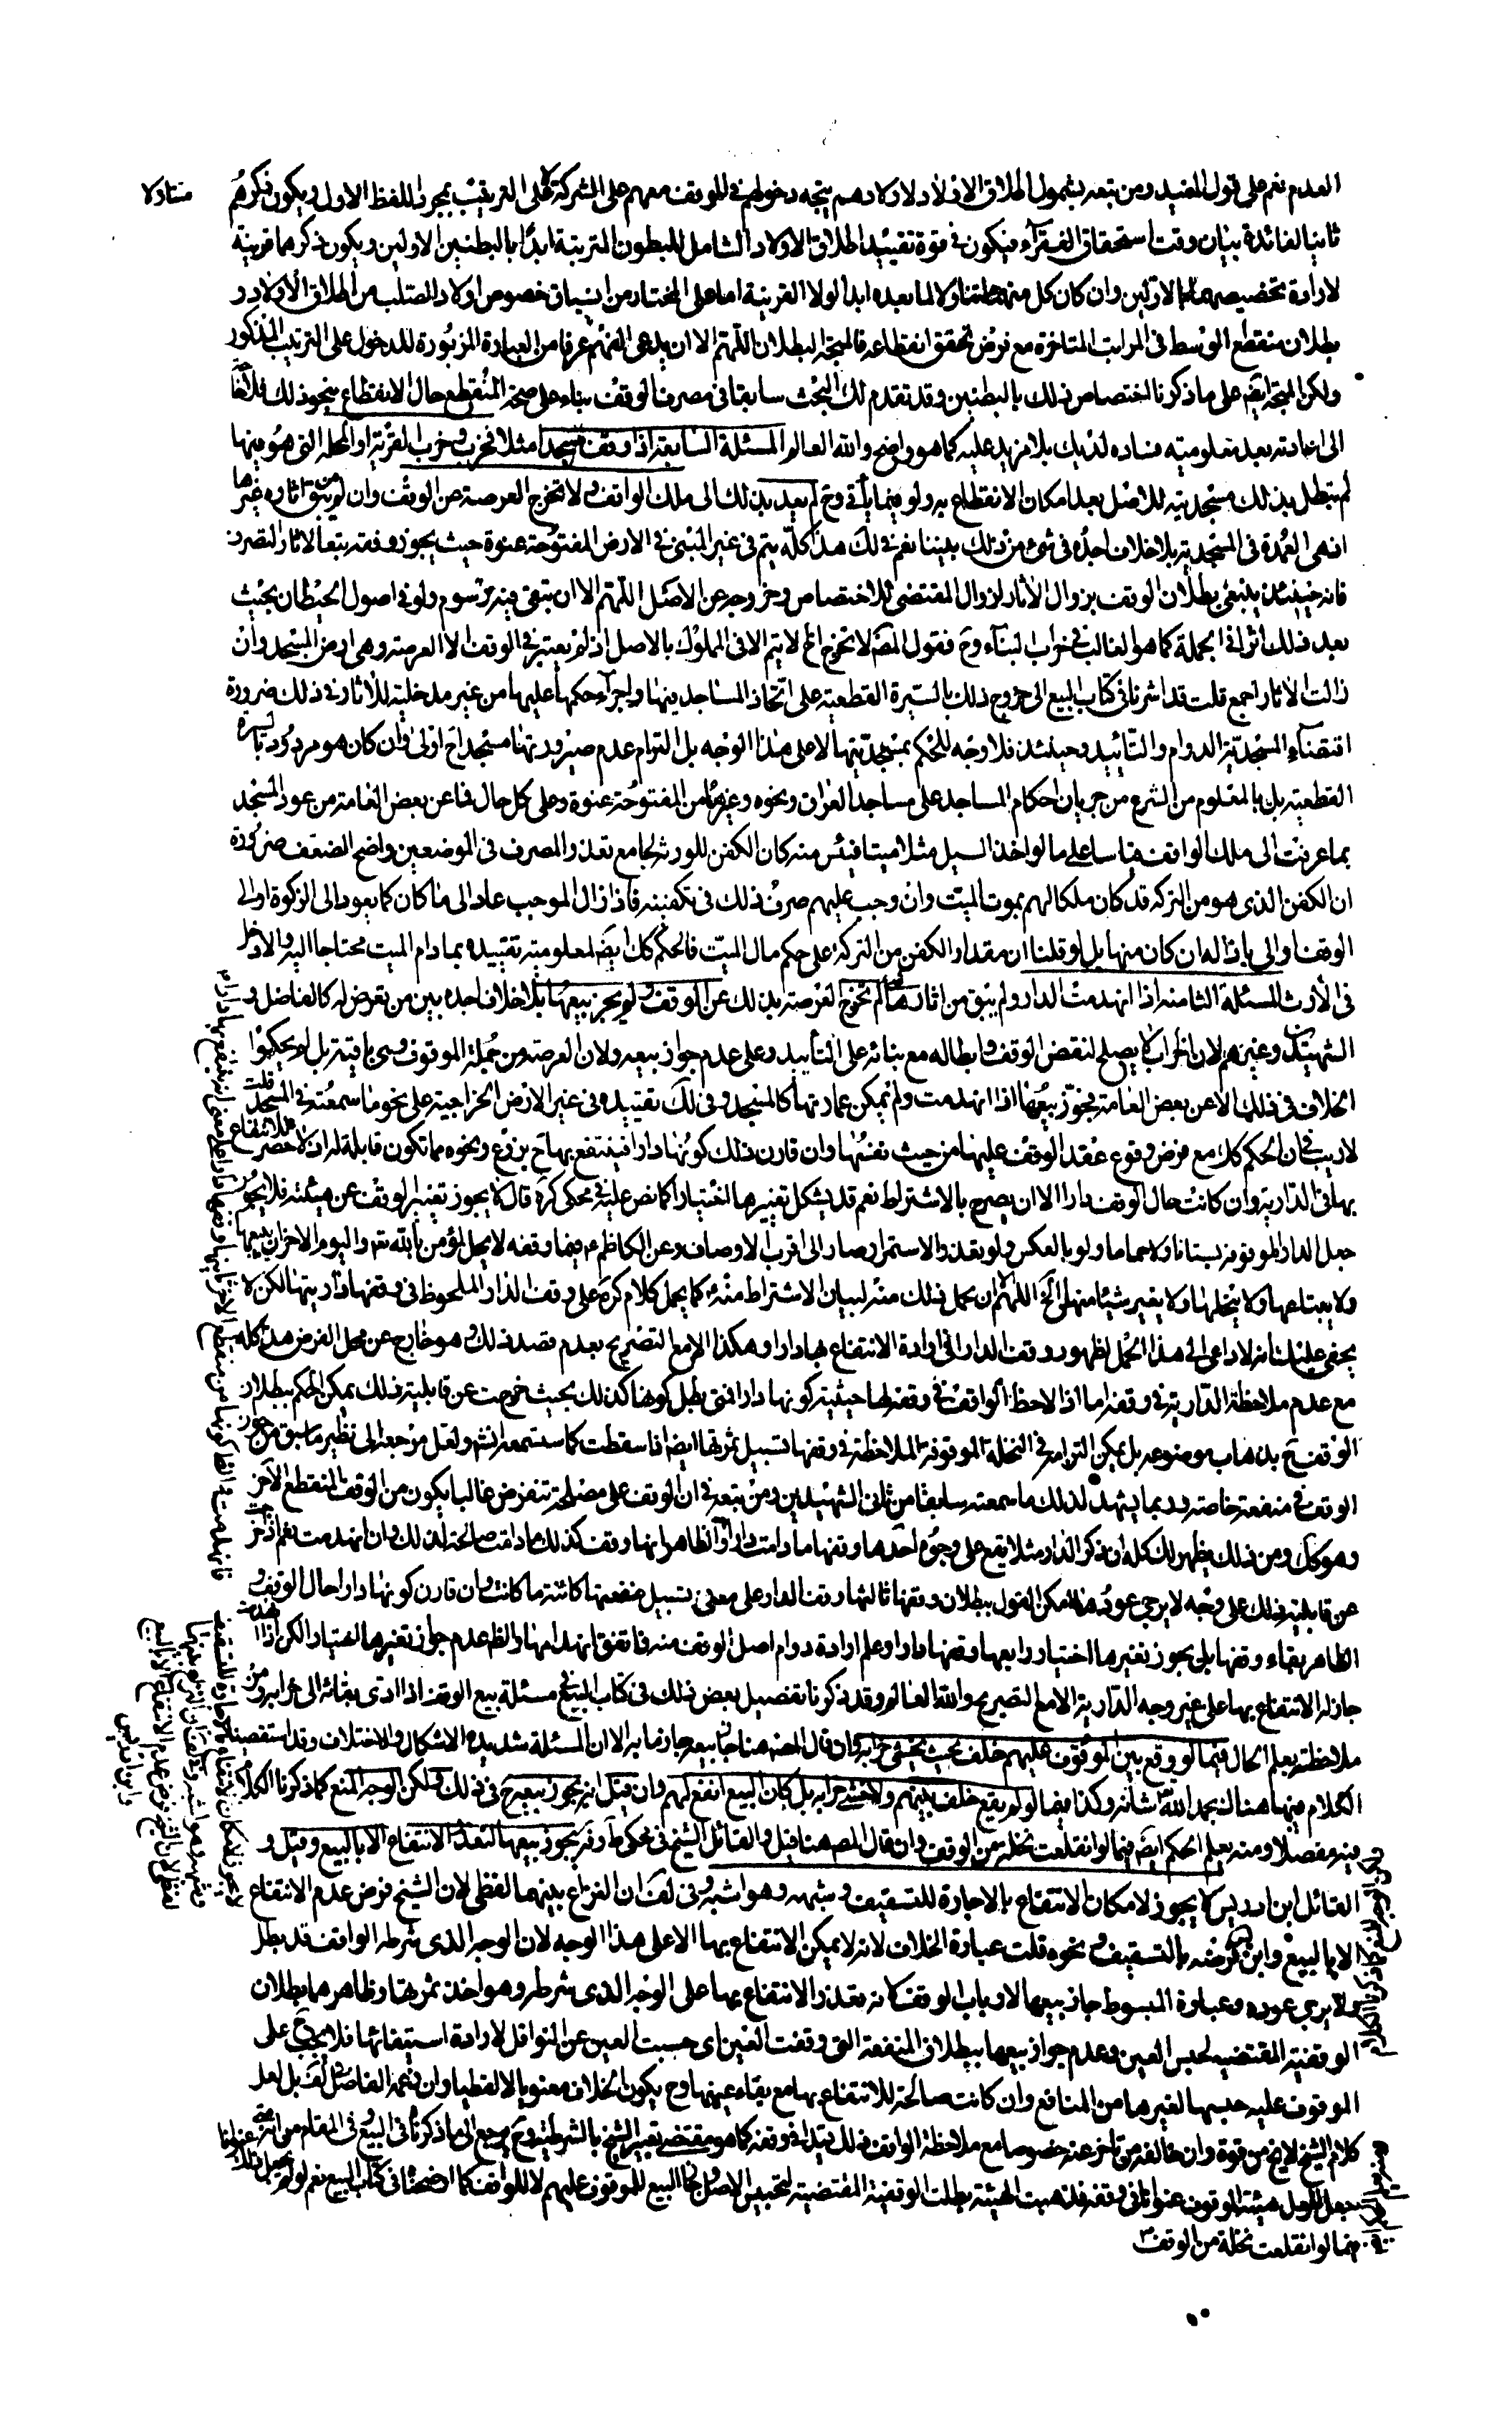 العدم نعم على قول المفيد ومن تبعه بشمول اطلاق الاولاد لاولادهم يتجه دخولهم في الموقف معهم على المشركة لا على الترتيب بمجرد اللفظ الاول ويكون ذكرهم
ثانيا لفائدة بيان وقت استحقاق الفقرآء فيكون في قوة تقييد اطلاق الاولاد الشامل للبطون المترتبة ابدا بالبطنين الاولين ويكون ذكرهما قرينة
لارادة تخصيصهما بالاولين وان كان كل منهما متناولا لما بعده ابدا لولا القرينة اما على المختار من انسباق خصوص اولاد الصلب من اطلاق الاولاد و
بطلان منقطع الوسط في المراتب المتاخرة مع فرض تحقق انقطاعه فالمتجه البطلان اللهم الا ان يدعى الفهم عرفا من العبارة المزبورة للدخول على الترتيب المذكور
ولكن المتجه ايضا على ما ذكرنا اختصاص ذلك بالبطنين وقد تقدم لك البحث سابقا في مصرف الوقف بناء على صحة المنقطع حال الانقطاع بنحو ذلك فلا
الى اعادته بعد معلوميته فساده لديك بلا مزيد عليه كما هو واضح والله العالم المسئلة السابعة اذا وقف مسجدا مثلا فخرب او خرب القرية او المحلة التي هو فيها
لم تبطل بذلك مسجديته للاصل بعد امكان الانقطاع به ولو فيما ياتي وح لم يعد بذلك الى ملك الواقف ولا تخرج العرصة عن الوقف وان لم يبق من آثاره غيرها
اذ هي العمدة في المسجدية بلا خلاف اجده في شئ من ذلك بيننا نعم في لك هذا كله يتم في غير المبنى في الارض المفتوحة عنوة حيث يجوز وقفه تبعا لاثار المتصرف
فانه حينئذ ينبغى بطلان الوقف بزوال الاثار لزوال المقتضى للاختصاص وخروجه عن الاصل اللهم الا ان تبقى فيه رسوم ولو في اصول الحيطان بحيث
يعد ذلك اثرا في الجملة كما هو الغالب في خراب البناء وح فقول المصنف لا تخرج الخ لا يتم الا في المملوك بالاصل اذ لم يعتبر في الوقف الا العرصة وهي ارض المسجد وان
زالت الاثار اجمع قلت قد اشرنا في كتاب البيع الى خروج ذلك بالسيرة القطعية على اتخاذ المساجد فيها واجرآء حكمها عليها من غير مدخلية للاثار في ذلك ضرورة
اقتضاء المسجدية الدوام والتأبيد وحينئذ فلا وجه للحكم بمسجديتها الا على هذا الوجه بل التزام عدم صيرورتها مسجدا ح اولى وان كان هو مردود بالسيرة
القطعية بل بالمعلوم من الشرع من جريان احكام المساجد على مساجد العراق ونحوه وغيرها من المفتوحة عنوة وعلى كل حال فما عن بعض العامة من عود المسجد
بما عرفت الى ملك الواقف قياسا على ما لو اخذ السيل مثلا ميتا فيئس منه كان الكفن للورثة لجامع تعذر المصرف في الموضعين واضح الضعف ضرورة
ان الكفن الذي هو من التركة قد كان ملكا لهم بموت الميت وان وجب عليهم صرف ذلك في تكفينه فاذا زال الموجب عاد الى ما كان كما يعود الى الزكوة او الى
الوقف او الى باذله ان كان منها بل لو قلنا ان مقدار الكفن من التركة على حكم مال الميت فالحكم كك ايضا لمعلومية تقييده بما دام الميت محتاجا اليه والا دخل
في الارث المسئلة الثامنة اذا انهدمت الدار ولم يبق من آثارها لم تخرج العرصة بذلك عن الوقف ولم يجز بيعها بلا خلاف اجده بين من تعرض له كالفاضل و
الشهيدين وغيرهم لان الخراب لا يصلح لنقض الوقف وابطاله مع بنائه على التأبيد وعلى عدم جواز بيعه ولان العرصة من جملة الموقوف وهى باقية بل لم يحكوا
الخلاف في ذلك الا عن بعض العامة فجوز بيعها اذا انهدمت ولم يمكن عمارتها كالمسجد وفي لك تقييده في غير الارض الخراجية على نحو ما سمعته في المسجد قلت
لا ريب في ان الحكم كك مع فرض وقوع عقد الوقف عليها من حيث نفسها وان قارن ذلك كونها دارا فينتفع بها ح بزرع ونحوه مما تكون قابلة له اذ لا حصر للانتفاع
بها في الدارية وان كانت حال الوقف دارا الا ان يصرح بالاشتراط نعم قد يشكل تغييرها اختيارا كما نص عليه في محكى كره قال لا يجوز تغيير الوقف عن هيئته فلا يجوز
جعل الدار الموقوفة بستانا ولا حماما ولو بالعكس ولو بعذر الاستمرار صار الى اقرب الاوصاف وعن الكاظم ع فيما وقفه لا يحل لمؤمن بالله تعالى واليوم الاخر ان يبيعها
ولا يبتاعها ولا ينحلها ولا يغير شيئا منها الخ اللهم الا ان يحمل ذلك منه لبيان الاشتراط منه كما يحمل كلام كره على وقف الدار الملحوظ في وقفها داريتها لكن لا
يخفى عليك انه لا داعي الى هذا الحمل لظهور وقف الدار في ارادة الانتفاع بها دارا وهكذا الا مع التصريح بعدم قصد ذلك وهو خارج عن محل الفرض هذا كله
مع عدم ملاحظة الدارية في وقفه اما اذا لاحظ الواقف في وقفها حيثية كونها دارا فمتى بطل كونها كذلك بحيث خرجت عن قابلية ذلك يمكن الحكم ببطلان
الوقف ح بذهاب موضوعه بل يمكن التزامه في النخلة الموقوفة الملاحظة في وقفها تسبيل ثمرتها ايضا اذا سقطت كما ستسمعه انشم ولعل مرجعه الى نظير ما سبق من جواز
الوقف في منفعة خاصة وربما يشهد لذلك ما سمعته سابقا من ثاني الشهيدين ومن تبعه في ان الوقف على مصلحة تنقرض غالبا يكون من الوقف المنقطع الآخر
وهو كك ومن ذلك يظهر لك كله ان ذكر الدار مثلا يقع على وجوه احدها وقفها ما دامت دارا والظاهر انها وقف كذلك ما دامت صالحة لذلك وان انهدمت نعم اذا خرجت
عن قابلية ذلك على وجه لا يرجى عوده هنا امكن القول ببطلان وقفها ثالثها وقف الدار على معنى تسبيل منفعتها كائنة ما كانت وان قارن كونها دارا حال الوقف و
الظاهر بقاء وقفها بل يجوز تغييرها اختيارا رابعها وقفها دارا وعلم ارادة دوام اصل الوقف منه فاتفق انهدامها والظ عدم جواز تغييرها اختيارا لكن اذا انهدمت
جاز له الانتفاع بها على غير وجه الدارية الا مع التصريح والله العالم وقد ذكرنا تفصيل بعض ذلك في كتاب البيع في مسئلة بيع الوقف اذا ادى بقائه الى خرابه ومن
ملاحظته يعلم الحال فيما لو وقع بين الموقوف عليهم خلف بحيث يخشى خرابه وان قال المصنف هنا جاز بيعه جازما به الا ان المسئلة شديدة الاشكال والاختلاف وقد استقصينا
الكلام فيها هناك بحمد الله شانه وكذا فيما لو لم يقع خلف بينهم ولا يخشى خرابه بل كان البيع انفع لهم وان قيل انه يجوز بيعه ح في ذلك ولكن الوجه المنع كما ذكرنا الكلام
فيه مفصلا ومنه يعلم الحكم ايضا فيما لو انقلعت نخلة من الوقف وان قال المصنف هنا قيل والقائل الشيخ في محكى ط وف يجوز بيعها لتعذر الانتفاع الا بالبيع وقيل و
القائل ابن ادريس لا يجوز لامكان الانتفاع بالاجارة للتسقيف وشبهه وهو اشبه وفي لف ان النزاع بينهما لفظي لان الشيخ فرض عدم الانتفاع
الا بالبيع وابن ادريس فرضه بالتسقيف ونحوه قلت عبارة الخلاف لانه لا يمكن الانتفاع بها الا على هذا الوجه لان الوجه الذي شرطه الواقف قد بطل
ولا يرجى عوده وعبارة المبسوط جاز بيعها لارباب الوقف لانه تعذر الانتفاع بها على الوجه الذي شرطه وهو اخذ ثمرتها وظاهرهما بطلان
الوقفية المقتضية لحبس العين وعدم جواز بيعها ببطلان المنفعة التي وقفت العين اى حبست العين عن النواقل لارادة استيفائها فلا يجب ح على
الموقوف عليه حبسها لغيرها من المنافع وان كانت صالحة للانتفاع بها مع بقاء عينها وح يكون الخلاف معنويا لا لفظيا وان زعمه الفاضل في لف بل لعل
كلام الشيخ لا يخ من قوة وان خالفه من تاخر عنه خصوصا مع ملاحظة الواقف ذلك قيدا في وقفه كما هو مقتضى تعبير الشيخ بالشرطية وح يرجع الى ما ذكرناه في البيع في المقام من انه
جعل الواقف هيئة الوقف عنوانا في وقفه فذهبت الهيئة بطلت الوقفية المقتضية لتحبيس الاصل وجاز البيع للموقوف عليهم لا للواقف كما اوضحناه في كتاب البيع نعم لو لم
فيما لو انقلعت نخلة من الوقف